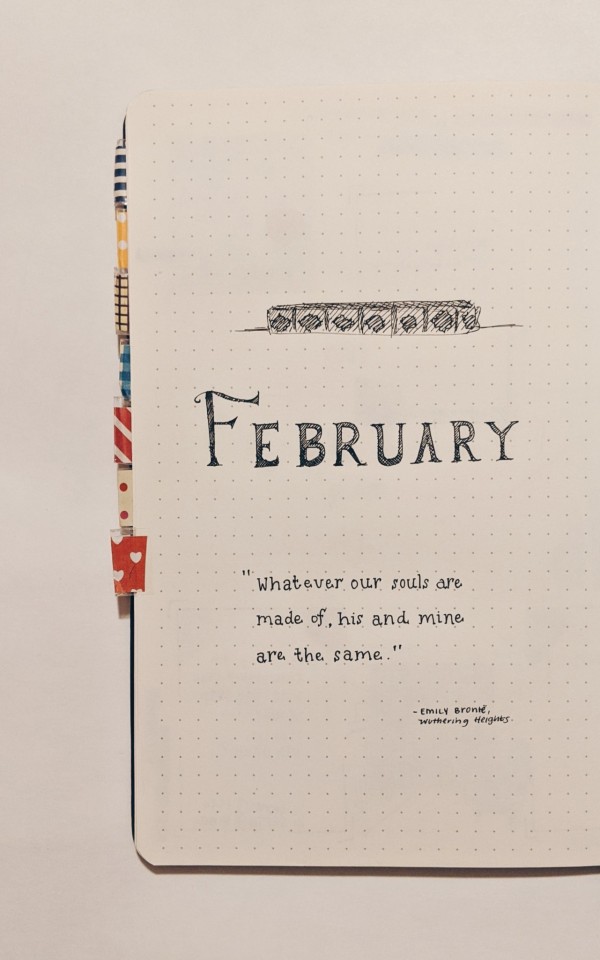 FEBRUARY
"Whatever our souls are
made of, his and mine
are the same."
-EMILY BRONTË,
Wuthering Heights.